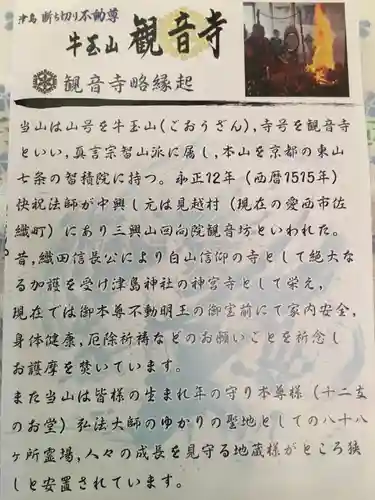 津島 断ち切り不動尊
牛玉山 観音寺
観音寺略縁起
当山は山号を牛玉山(ごおうざん),寺号を観音寺
といい,真言宗智山派に属し,本山を京都の東山
七条の智積院に持つ。永正12年（西暦1515年）
快祝法師が中興し元は見越村（現在の愛西市佐
織町）にあり三興山回向院観音坊といわれた。
昔,織田信長公により白山信仰の寺として絶大な
る加護を受け津島神社の神宮寺として栄え,
現在では御本尊不動明王の御宝前にて家内安全,
身体健康,厄除祈祷などのお願いごとを祈念し
お護摩を焚いています。
また当山は皆様の生まれ年の守り本尊様（十二支
のお堂）弘法大師のゆかりの聖地としての八十八
ヶ所霊場,人々の成長を見守る地蔵様がところ狭
しと安置されています。